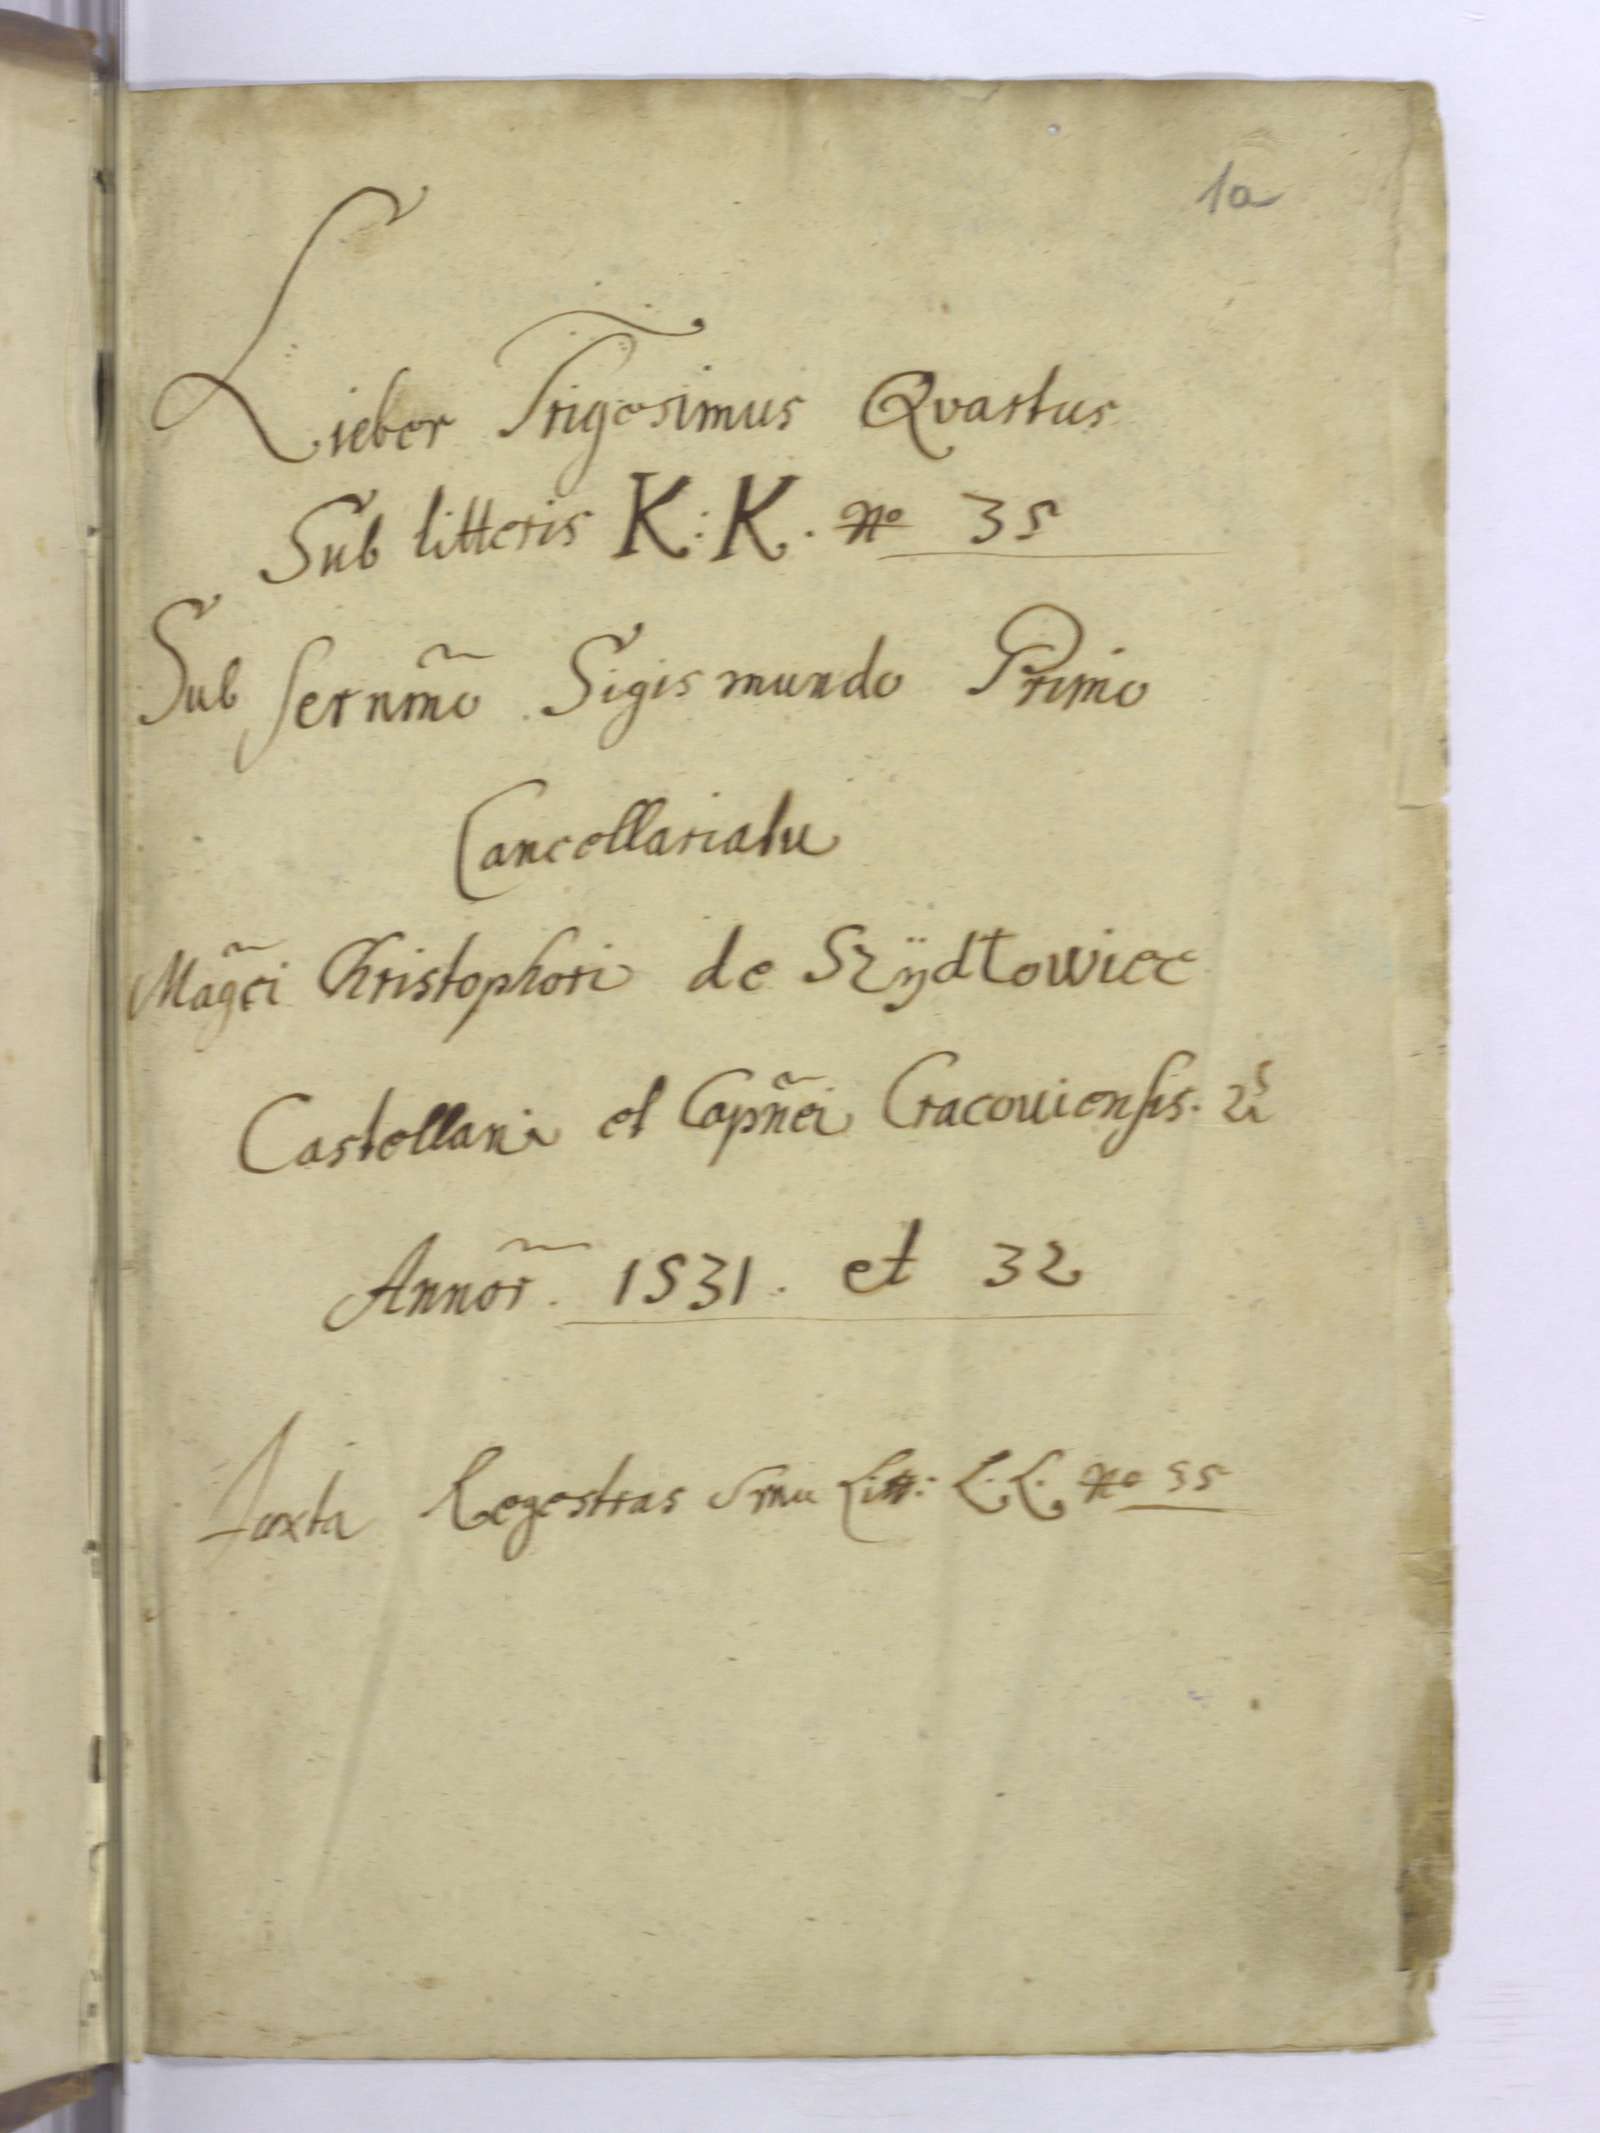 1a
Lieber Trigesimus Qvartus
Sub litteris K: K. No 35
Sub Sernm̃o Sigismundo Primo
Cancellariatu
Magc̃i Christophori de Szÿdłowiec
Castellani et Capñei Cracouiensis.
Annor̃. 1531. et 32
Juxta Regestras Litt: L. L. No 35